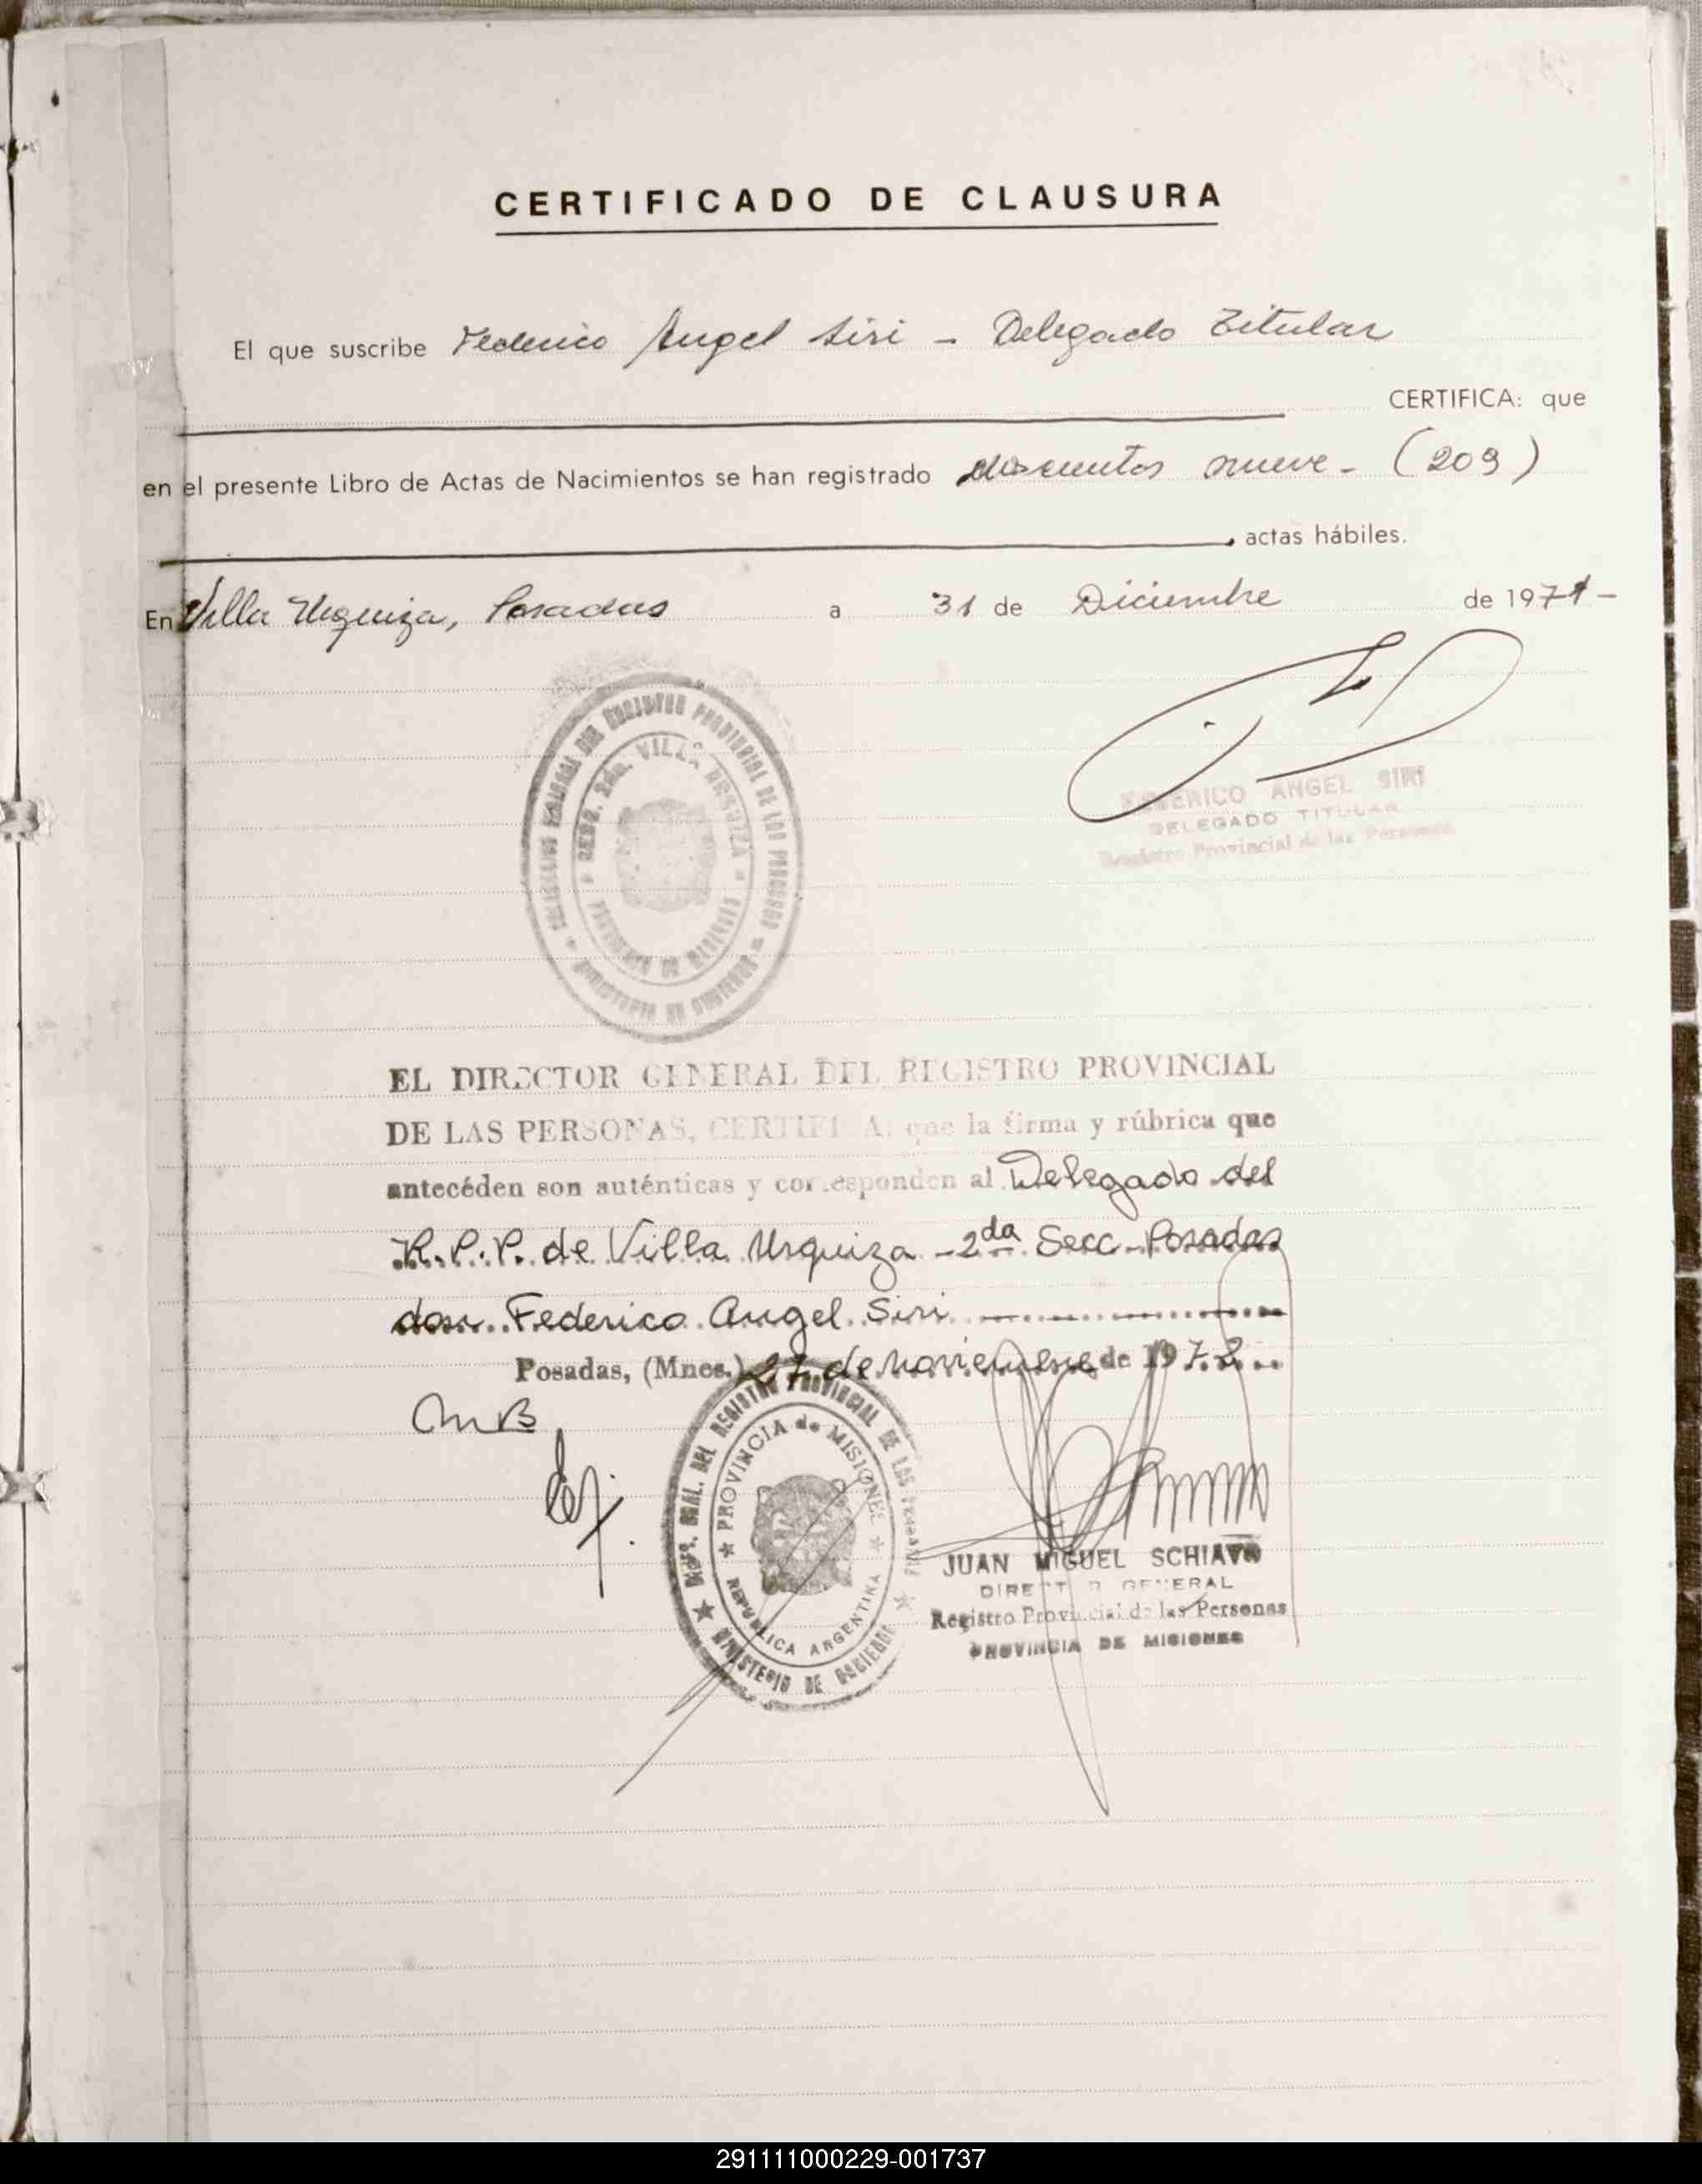 CERTIFICADO DE CLAUSURA
El que suscribe Federico Angel Siri - Delegado Titular
CERTIFICA: que
en el presente Libro de Actas de Nacimientos se han registrado doscientos nueve - (209)
, actas hábiles.
En Villa Urquiza, Posadas a 31 de Diciembre de 1971-
REGISTRO PROVINCIAL DE LAS PERSONAS
MINISTERIO DE GOBIERNO
VILLA URQUIZA
PROVINCIA DE MISIONES
FEDERICO ANGEL SIRI
DELEGADO TITULAR
Registro Provincial de las Personas
EL DIRECTOR GENERAL DEL REGISTRO PROVINCIAL
DE LAS PERSONAS, CERTIFICA: que la firma y rúbrica que
antecéden son auténticas y corresponden al Delegado del
R.P.P. de Villa Urquiza - 2da Secc - Posadas
don Federico Angel Siri
Posadas, (Mnes.) 27 de noviembre de 1972
DIRC. GRAL. DEL REGISTRO PROVINCIAL DE LAS PERSONAS
PROVINCIA de MISIONES
REPUBLICA ARGENTINA
MINISTERIO DE
JUAN MIGUEL SCHIAVO
DIRECTOR GENERAL
Registro Provincial de las Personas
PROVINCIA DE MISIONES
291111000229-001737